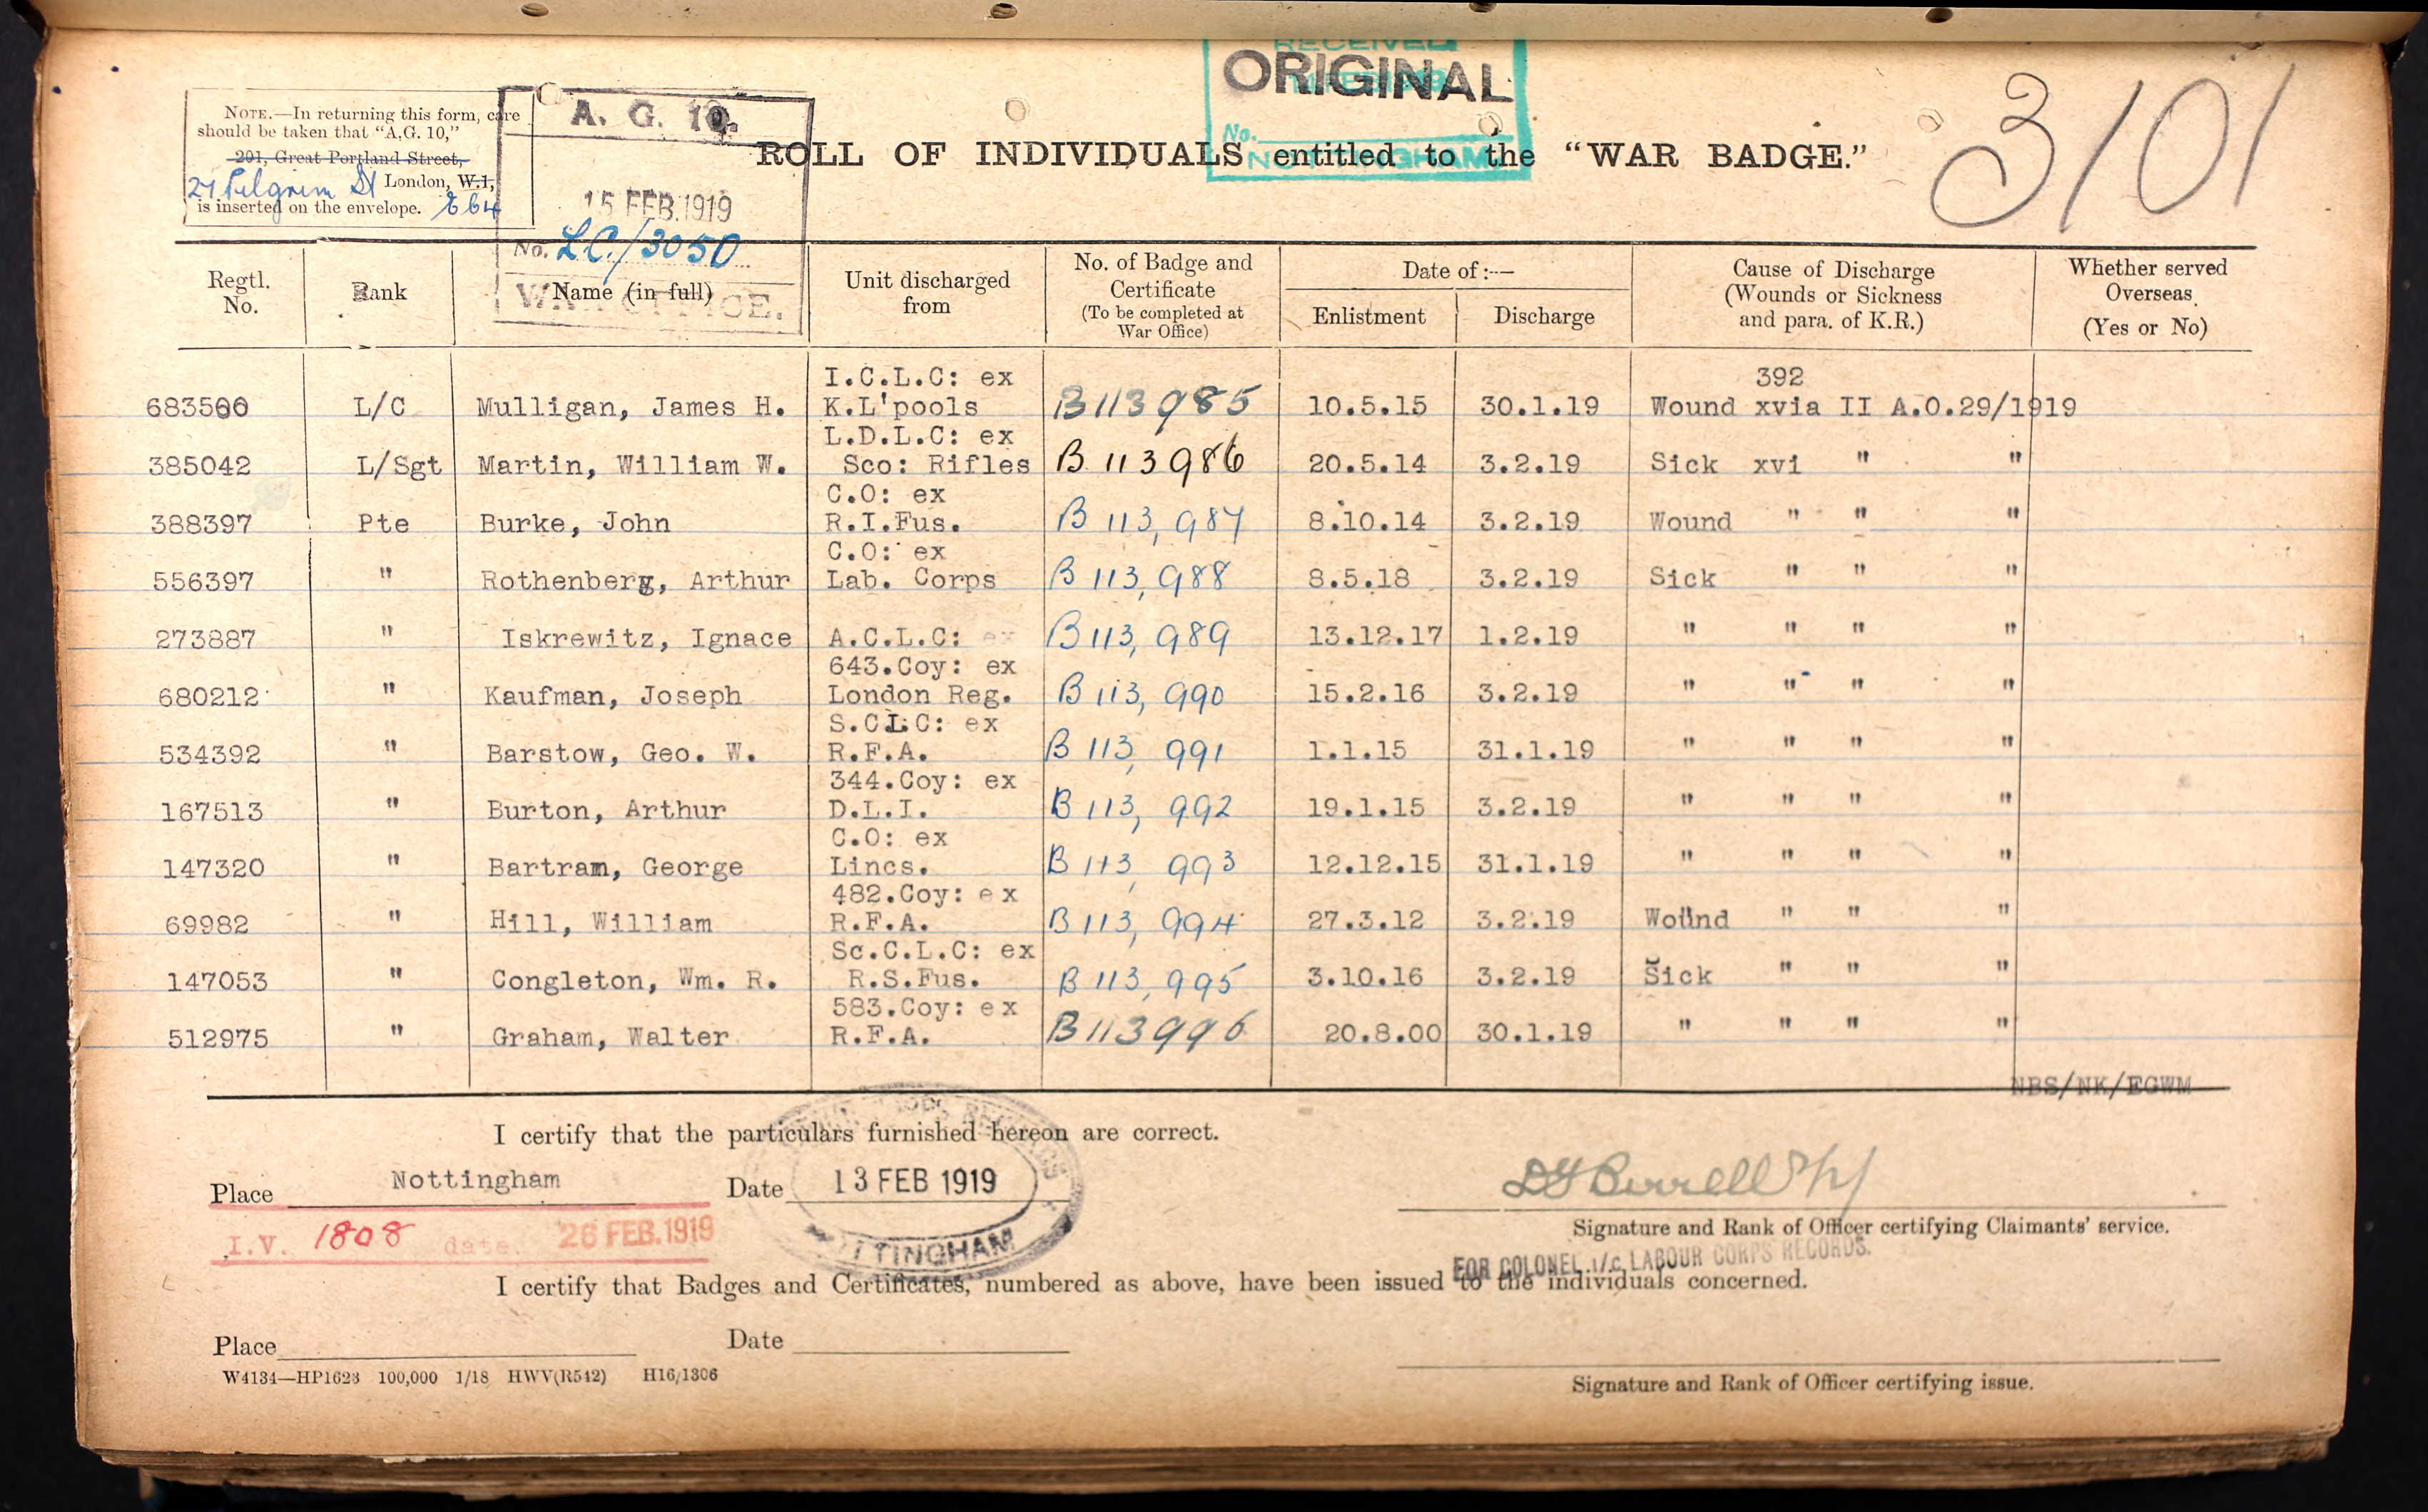 RECEIVED
ORIGINAL
No.
NOTTINGHAM
3101
NOTE.—In returning this form, care
should be taken that "A.G. 10,"
201, Great Portland Street,
27 Pilgrim St London, W.1,
is inserted on the envelope. E C 4
A. G. 10.
15 FEB.1919
No. LC/3050
WAR OFFICE.
ROLL OF INDIVIDUALS entitled to the "WAR BADGE."
Regtl. No. Rank Name (in full) Unit discharged from No. of Badge and Certificate (To be completed at War Office) Date of:— Enlistment Discharge Cause of Discharge (Wounds or Sickness and para. of K.R.) Whether served Overseas (Yes or No)
I.C.L.C: ex 392
683500 L/C Mulligan, James H. K.L'pools B113985 10.5.15 30.1.19 Wound xvia II A.O.29/1919
L.D.L.C: ex
385042 L/Sgt Martin, William W. Sco: Rifles B 113986 20.5.14 3.2.19 Sick xvi " "
C.O: ex
388397 Pte Burke, John R.I.Fus. B 113,987 8.10.14 3.2.19 Wound " " "
C.O: ex
556397 " Rothenberg, Arthur Lab. Corps B 113,988 8.5.18 3.2.19 Sick " " "
273887 " Iskrewitz, Ignace A.C.L.C: ex B 113,989 13.12.17 1.2.19 " " " "
643.Coy: ex
680212 " Kaufman, Joseph London Reg. B 113,990 15.2.16 3.2.19 " " " "
S.C.L.C: ex
534392 " Barstow, Geo. W. R.F.A. B 113,991 1.1.15 31.1.19 " " " "
344.Coy: ex
167513 " Burton, Arthur D.L.I. B 113,992 19.1.15 3.2.19 " " " "
C.O: ex
147320 " Bartram, George Lincs. B 113,993 12.12.15 31.1.19 " " " "
482.Coy: ex
69982 " Hill, William R.F.A. B 113,994 27.3.12 3.2.19 Wound " " "
Sc.C.L.C: ex
147053 " Congleton, Wm. R. R.S.Fus. B 113,995 3.10.16 3.2.19 Sick " " "
583.Coy: ex
512975 " Graham, Walter R.F.A. B113996 20.8.00 30.1.19 " " " "
NBS/NK/EGWM
I certify that the particulars furnished hereon are correct.
Place Nottingham Date 13 FEB 1919
NOTTINGHAM
Signature and Rank of Officer certifying Claimants' service.
I.V. 1808 date. 26 FEB.1919
FOR COLONEL i/c LABOUR CORPS RECORDS.
I certify that Badges and Certificates, numbered as above, have been issued to the individuals concerned.
Place Date
W4134—HP1623 100,000 1/18 HWV(R542) H16/1306
Signature and Rank of Officer certifying issue.